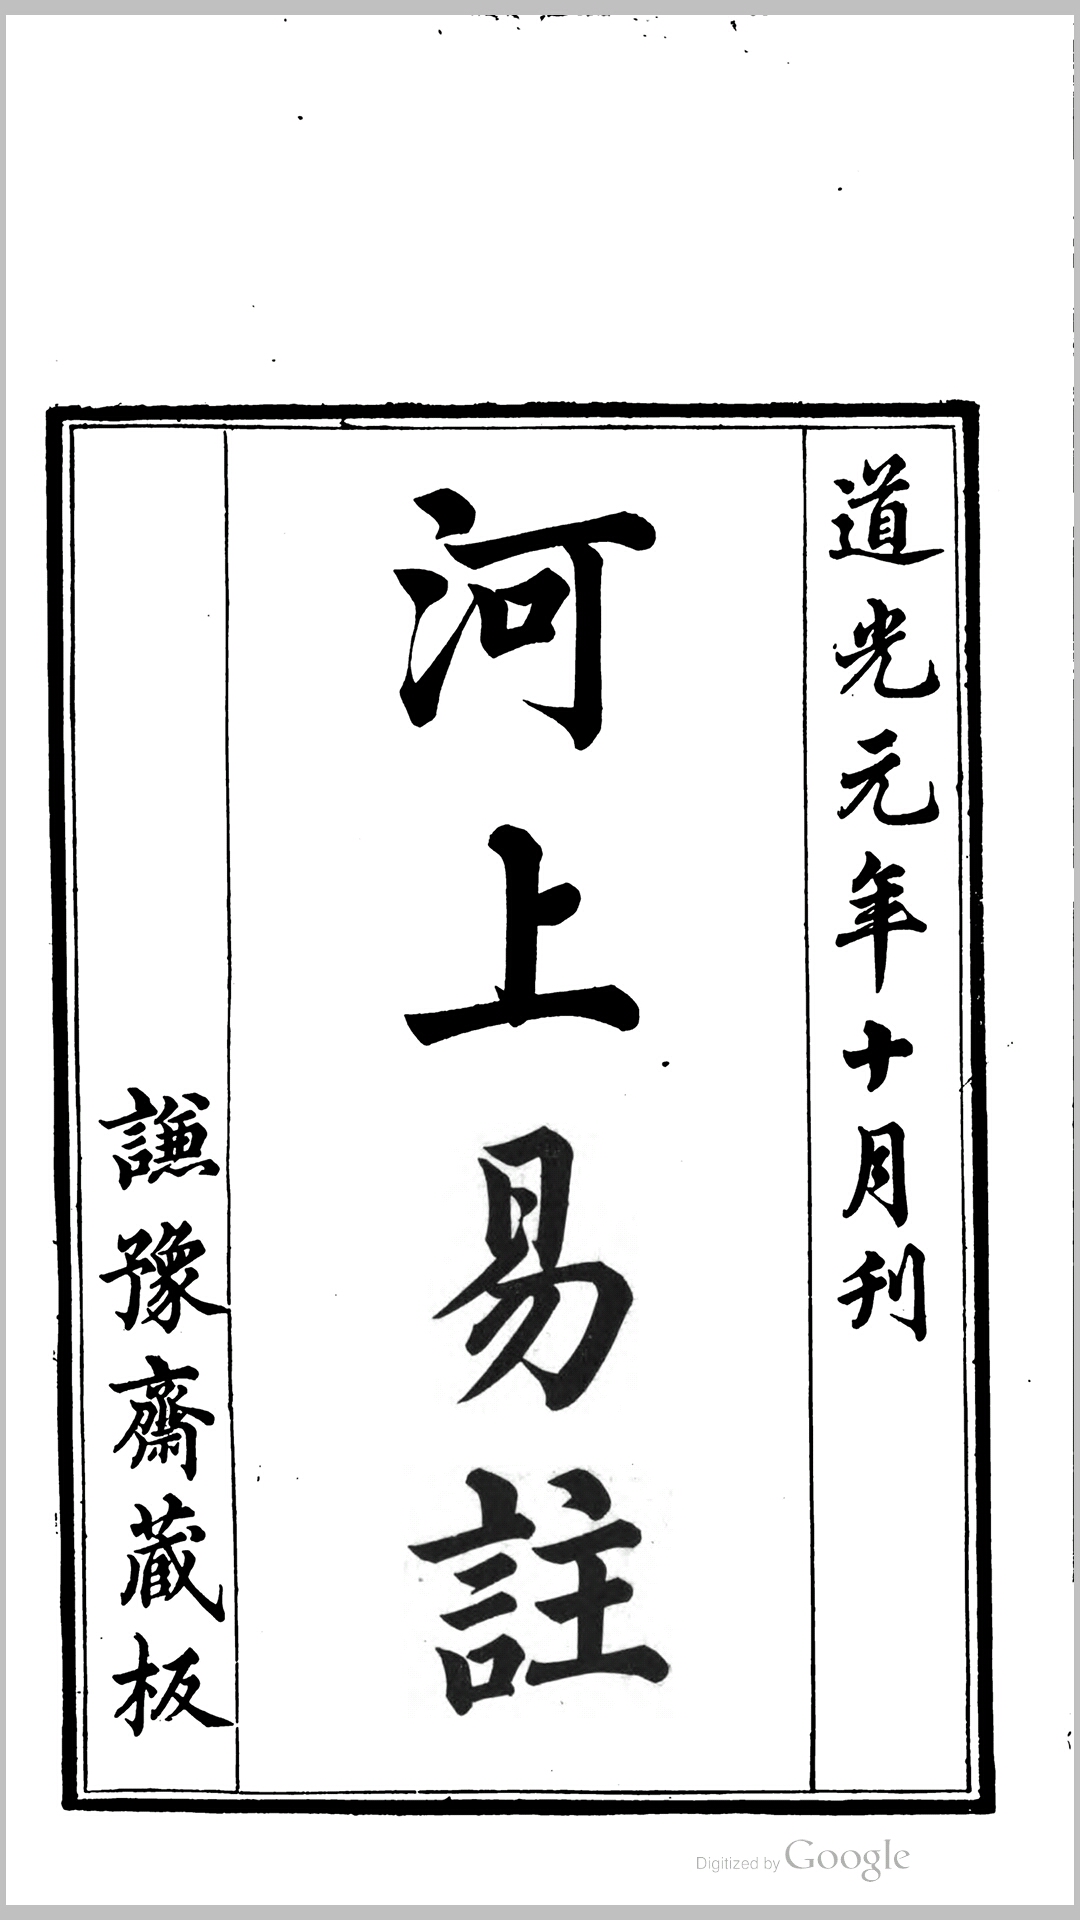 道光元年十月刊
河上易註
謙豫齋藏板
Digitized by Google